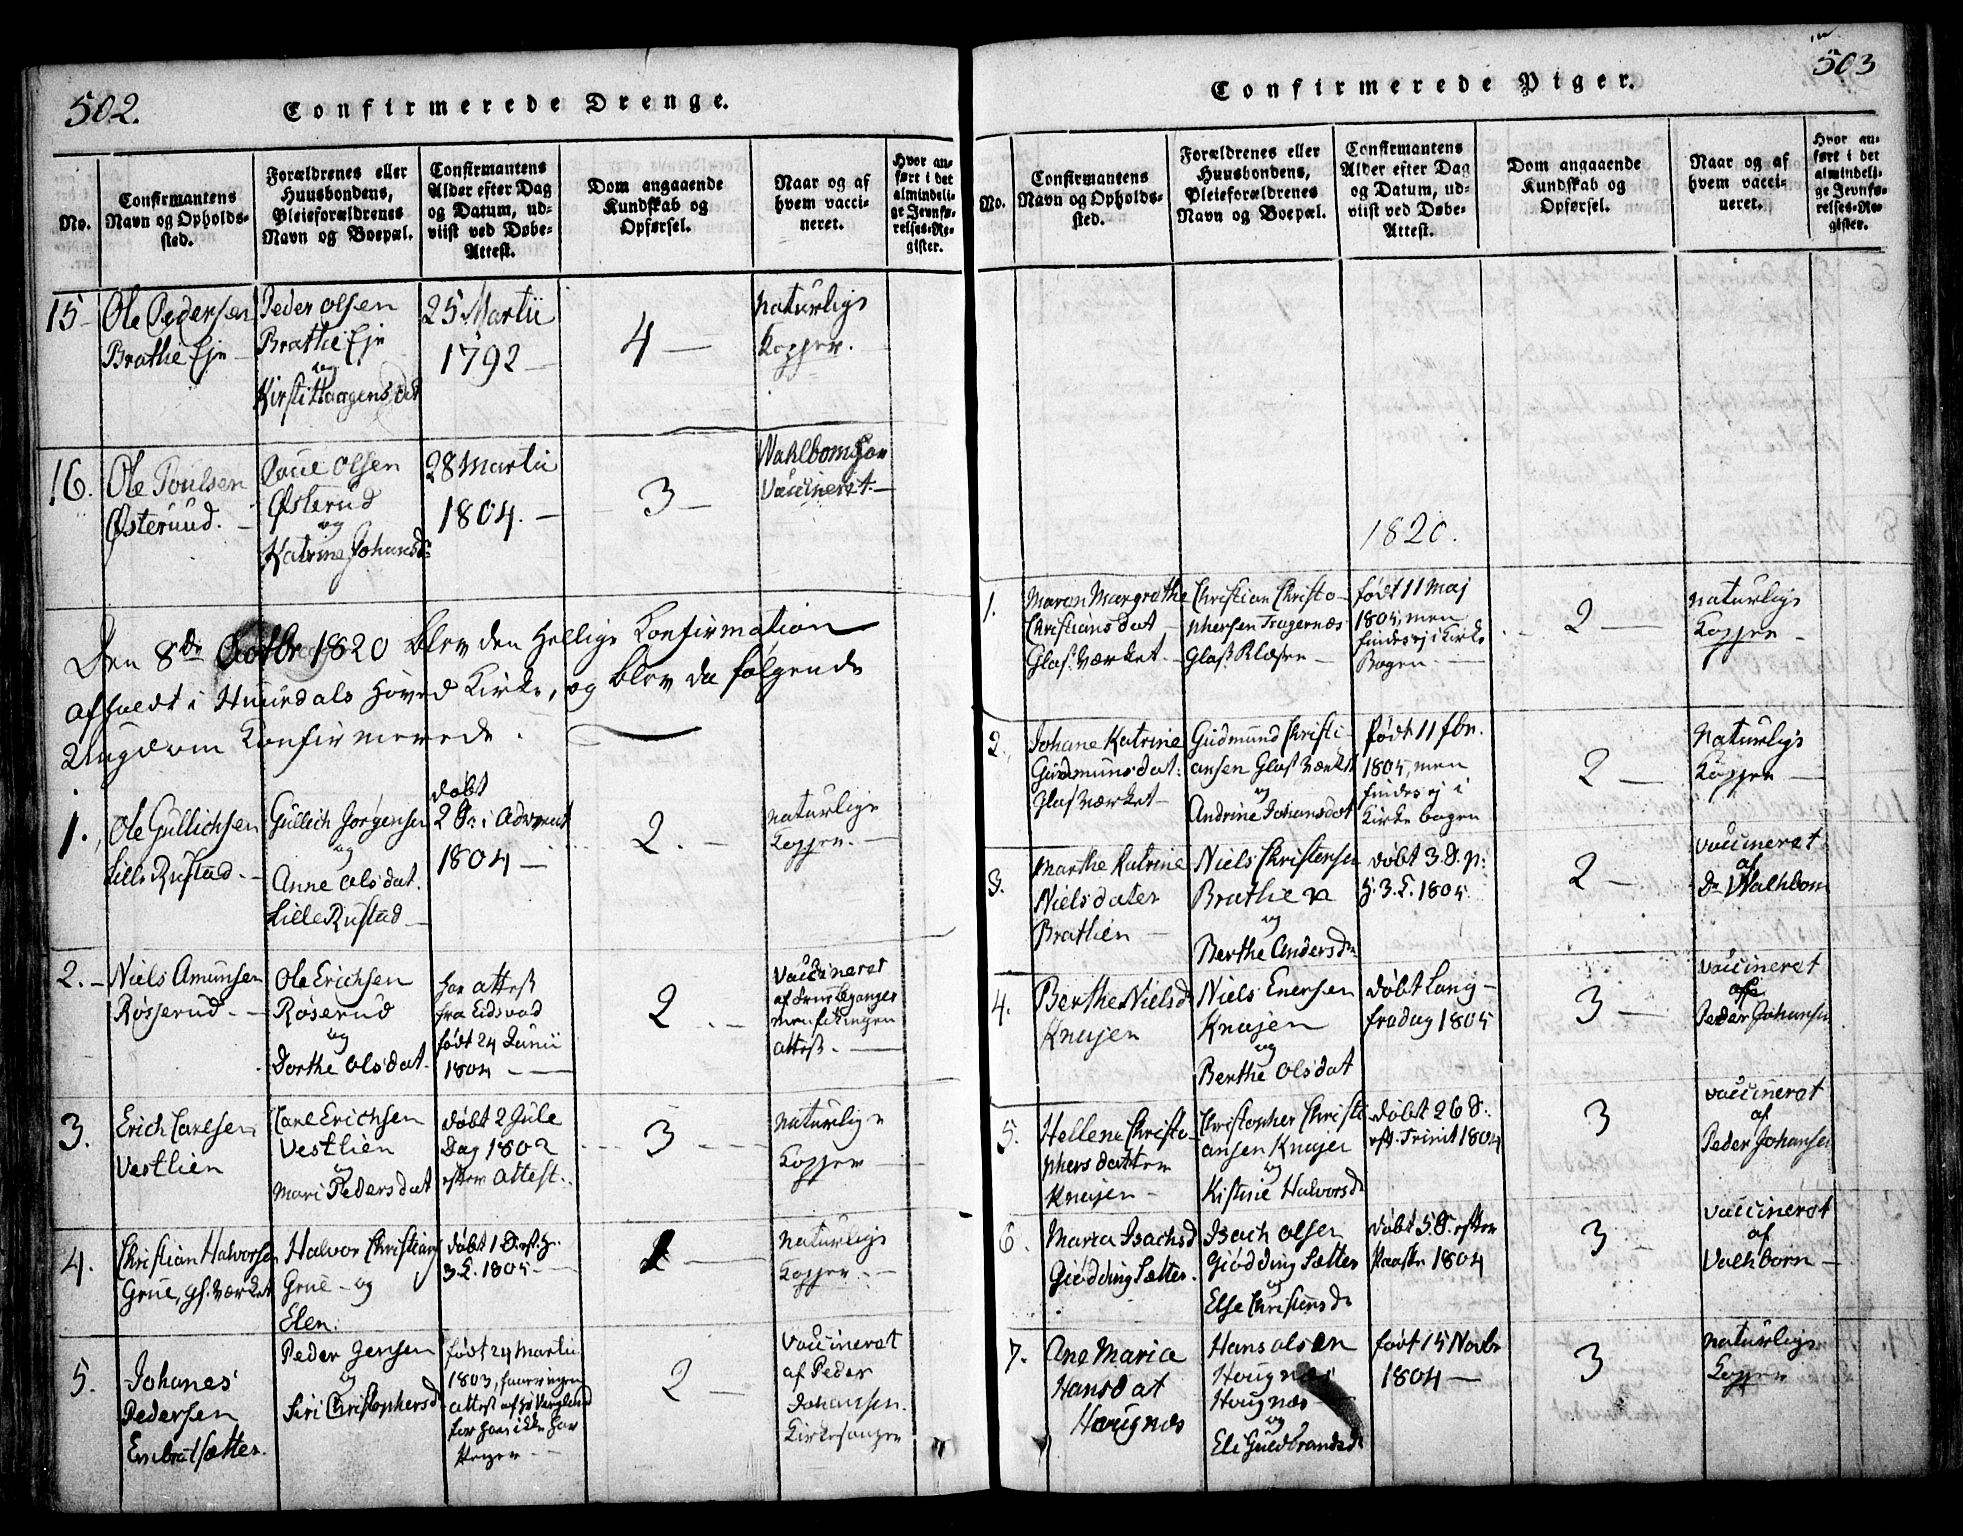 502.
Confirmerede Drenge.
No.
Confirmantens
Navn og Opholds-
sted.
Forældrenes eller
Huusbondens,
Pleieforældrenes
Navn og Boepæl.
Confirmantens
Alder efter Dag
og Datum, ud-
viist ved Døbe-
Attest.
Dom angaaende
Kundskab og
Opførsel.
Naar og af
hvem vacci-
neret.
Hvor an-
ført i det
almindeli-
ge Jevnfø-
relses-Re-
gister.
15
Ole Pedersen
Brathe Eje
Peder Olsen
Brathe Eje
og
Kirsti Haagens Dat
25 Martii
1792
4
naturlige
Kopper.
16.
Ole Poulsen
Østeruud.
Poul Olsen
Østerud
og
Katrine Johansdr
28 Martii
1804.
3
Wahlbom har
Vaccineret.
Den 8de Octbr 1820 blev den Hellige Confirmation
afholdt i Huurdals Hoved Kirke, og blev da følgende
Ungdom Confirmerede.
1.
Ole Gullichsen
Lille Rustad.
Gullich Jørgensen
og
Anne Olsdat.
Lille Rustad
døbt
2 S. i Advent
1804
2.
naturlige
Kopper.
2.
Niels Amunsen
Røsserud.
Ole Erichsen
Røserud
og
Dorthe Olsdat.
har attest
fra Eidsvold
født 24 Junii
1804
2
vaccineret
attest.
3.
Erich Carlsen
Vestlien
Carl Erichsen
Vestlien
og
Mari Pedersdat
døbt 2 Jule
Dag 1802
efter attest.
3
naturlige
Kopper
4.
Christian Halvorsen
Grue, gl. værket
Halvor Christians
Grue og
Elen.
døbt 1 S. eft. H.
3 K. 1805
naturlige
Kopper
5.
Johanes
Pedersen
Enebratsætter.
Peder Jensen
og
Siri Christophersd
født 24 Martii
1803,
for han ikke har
2
vaccineret
af Peder
Johansen.
Kirkesanger
503
Confirmerede Piger.
No.
Confirmantens
Navn og Opholds-
sted.
Forældrenes eller
Huusbondens,
Pleieforældrenes
Navn og Boepæl.
Confirmantens
Alder efter Dag
og Datum, ud-
viist ved Døbe-
Attest.
Dom angaaende
Kundskab og
Opførsel.
Naar og af
hvem vacci-
neret.
Hvor an-
ført i det
almindeli-
ge Jevnfø-
relses-Re-
gister.
1820.
1.
Maren Margrethe
Christians dat
Glas værket
Christian Christo-
phersen
Glas Blæser
født 11 Maj
1805, men
findes ej i Kirke
Bogen
2
naturlige
Kopper
2.
Johane Katrine
Gudmunsdat:
Glasværket
Gudmund Christi-
ansen Glas værket
og
Andrine Johansdat
født 11 fbr.
1805, men
findes ej i
Kirke bogen
2
Naturlige
Kopper
3.
Marthe Katrine
Nielsdater
Brathen
Niels Christensen
Brathen
og
Berthe Andersdr
døbt 3 S. p:
H. 3 K. 1805
2
vaccineret
af
Dr Walhbom
4.
Berthe Nielsd
Knajen
Niels Enersen
Knajen
og
Berthe Olsdat
døbt Lang-
fredag 1805
3
vaccineret
af
Peder Johansen
5.
Hellene Christo-
phersdatter
Knajen
Christopher Christi
ansen Knajen
og
Kistine Halvorsd
døbt 26 S.
eft. Trinit 1804
3
vaccineret
af
Peder Johansen
6.
Maria Isachsd
Giødding Sætter.
Isach Olsen
Giødding Sætter
og
Else Christensdr
døbt 5 S. efter
Paaske 1804
3
vaccineret
af
Valhborn
7.
Ane Maria
Hansdat
Hougnæs
Hans Olsen
Hougnæs
Hougnæs
og
Eli Guldbrandsd
født 15 Novbr
1804
3
naturlige
Kopper